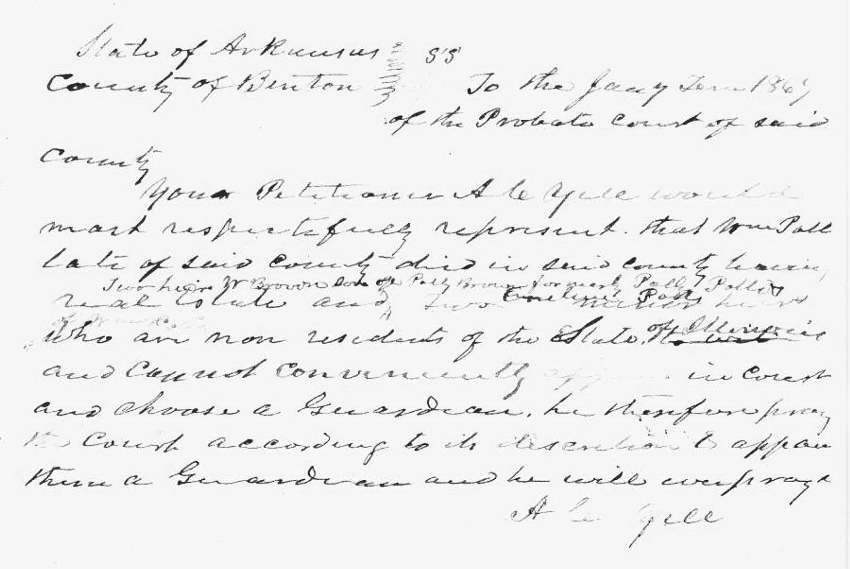 State of Arkansas SS
County of Benton To the Jany Term 186
of the Probate Court of said
County
Your Petitioner A Yell would
most respectfully represent that Wm Patt
late of said County died in said County leaving
Two heirs W Brown son of Polly Brown formerly Polly
real Estate and two minor heirs
who are non residents of the State of Illinois
and Cannot Conveniently in Court
and Choose a Guardian, he therefore pray
the Court according to its discretion to appoin
them a Guardian and he will ever pray
A Yell